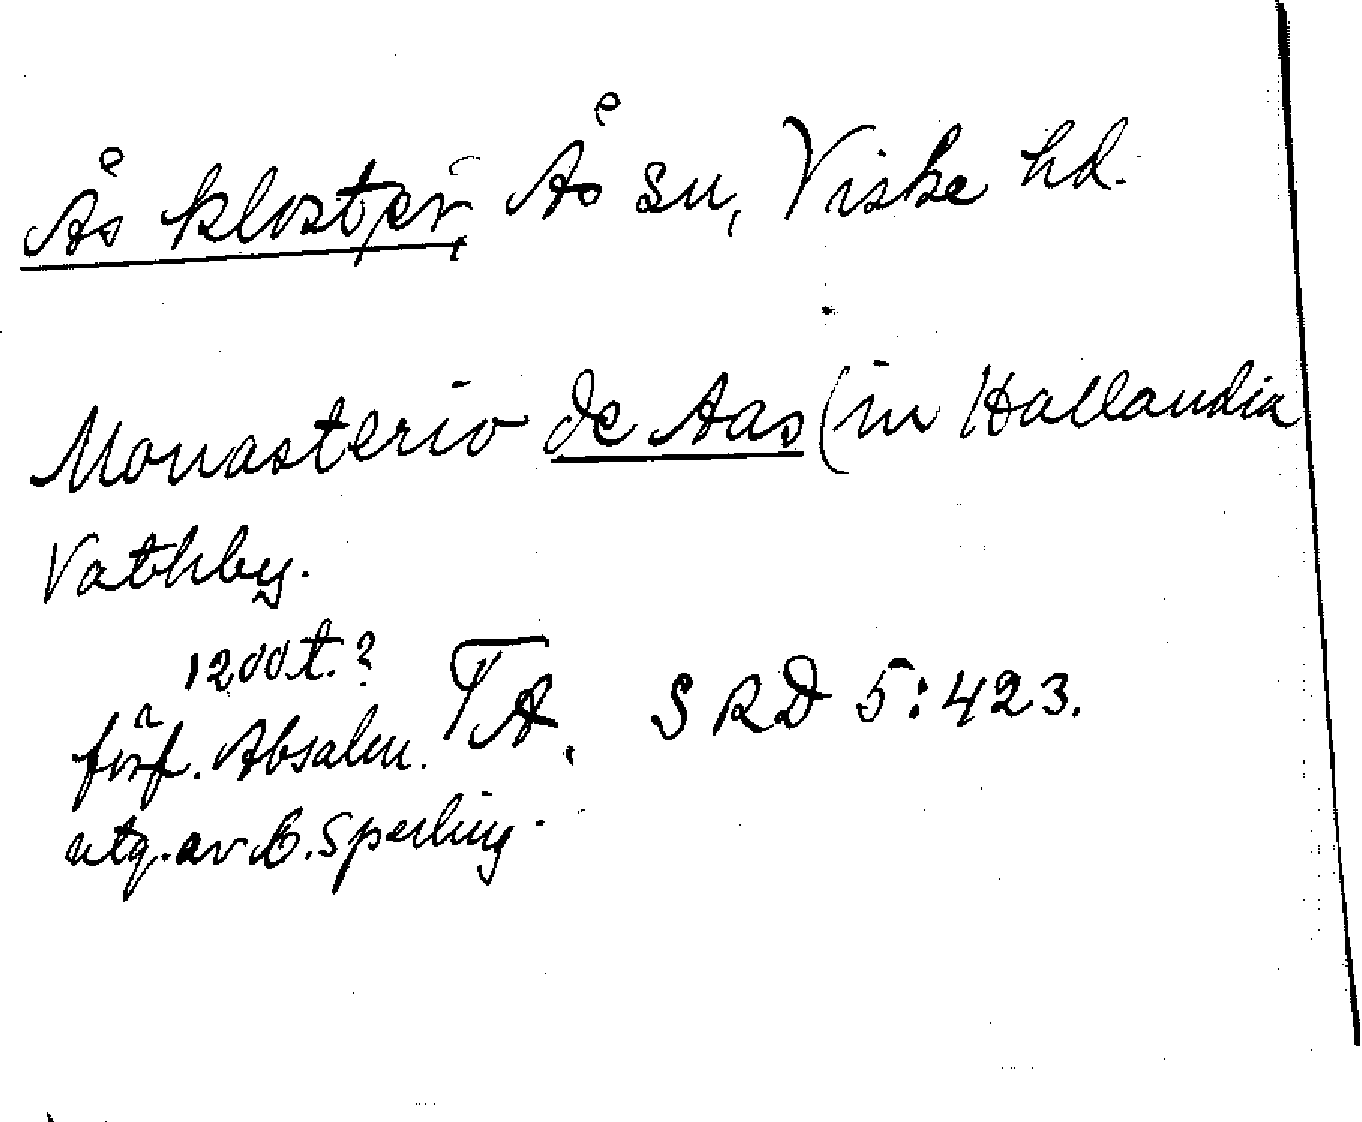 Ås kloster, Ås sn, Viske hd.
Monasterio de Aas (in Hallandia
Vathby.
1200 t.? TA. SRD 5:423.
förf. Absalon.
utg. av O. Sperling.